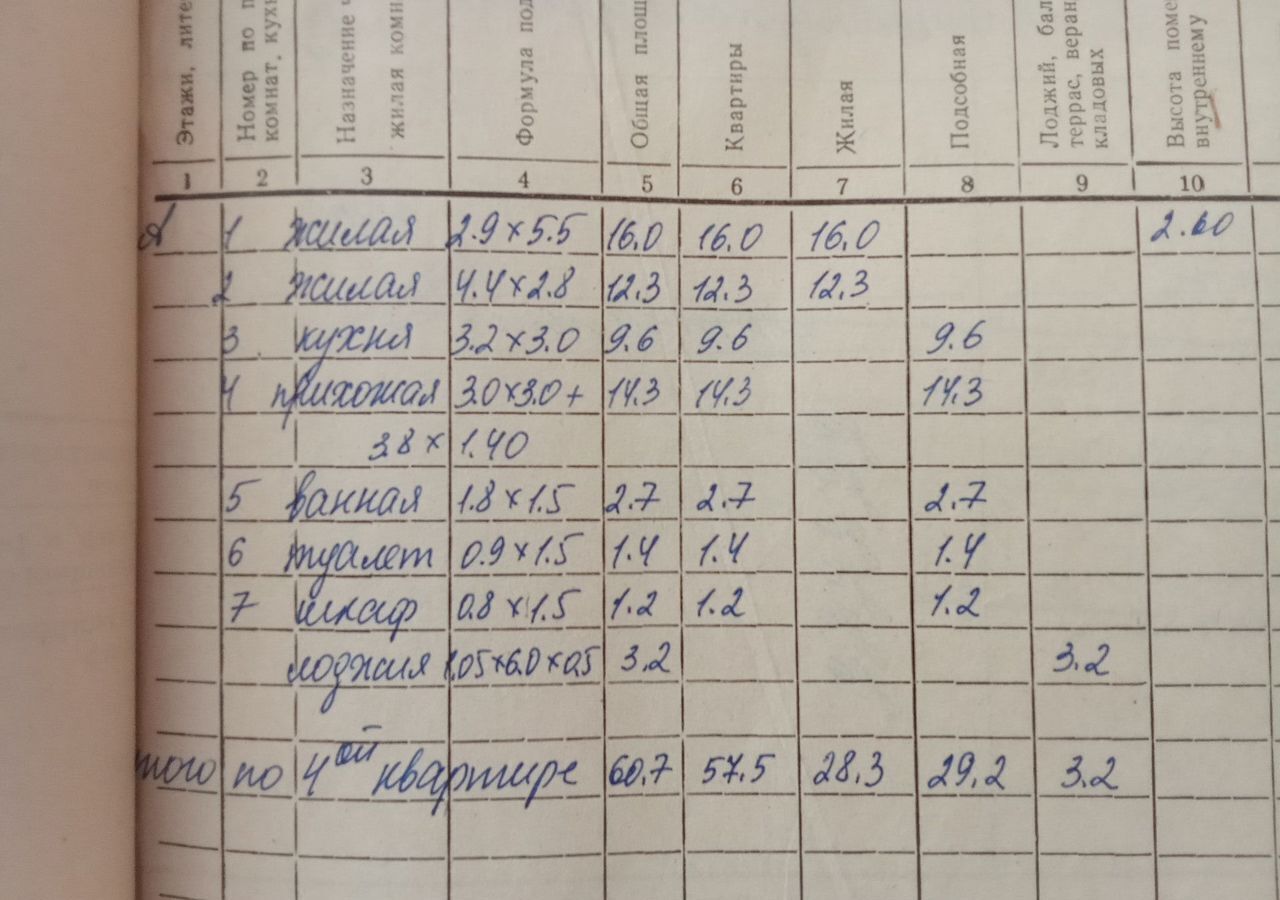 Этажи, лите
Номер по п
комнат, кухн
Назначение ч
жилая комн
Формула под
Общая площ
Квартиры
Жилая
Подсобная
Лоджий, бал
террас, веран
кладовых
Высота поме
внутреннему
1 2 3 4 5 6 7 8 9 10
А 1 жилая 2.9 х 5.5 16.0 16.0 16.0 2.60
2 жилая 4.4 х 2.8 12.3 12.3 12.3
3 кухня 3.2 х 3.0 9.6 9.6 9.6
4 прихожая 3.0 х 3.0 + 14.3 14.3 14.3
3.8 х 1.40
5 ванная 1.8 х 1.5 2.7 2.7 2.7
6 туалет 0.9 х 1.5 1.4 1.4 1.4
7 шкаф 0.8 х 1.5 1.2 1.2 1.2
лоджия 1.05 х 6.0 х 0.5 3.2 3.2
того по 4ой квартире 60.7 57.5 28.3 29.2 3.2